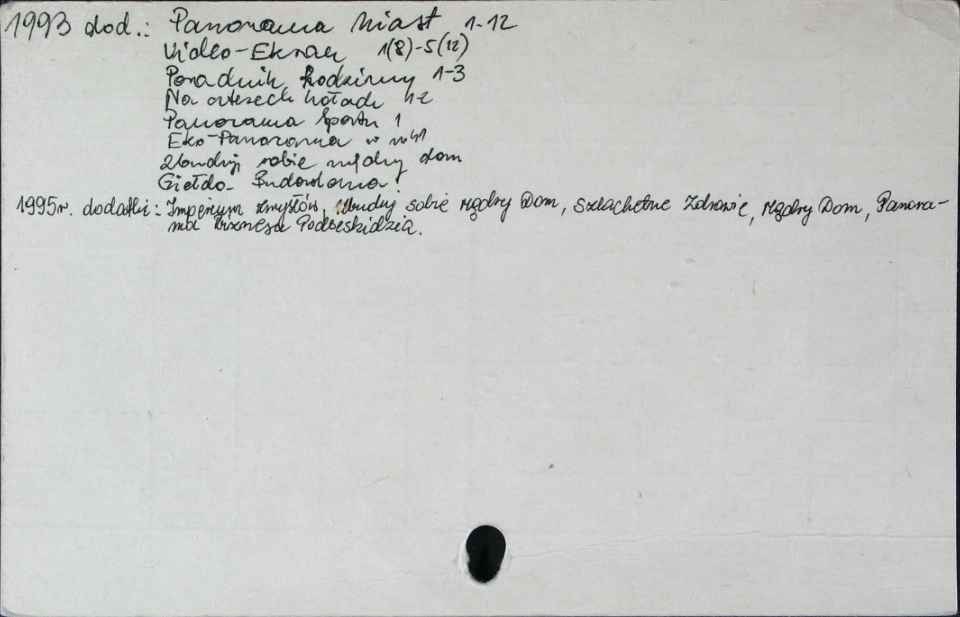 1993 dod.: Panorama Miast 1-12
Video-Ekran 1(8)-5(12)
Poradnik Rodzinny 1-3
Na czterech kołach 1-2
Panorama Sportu 1
Eko-Panorama w
Zbuduj sobie mądry dom
Giełda Budowlana
1995r. dodatki: Imperium zmysłów, Zbuduj sobie Mądry Dom, Szlachetne Zdrowie, Mądry Dom, Panora-
ma Biznesu Podbeskidzia.